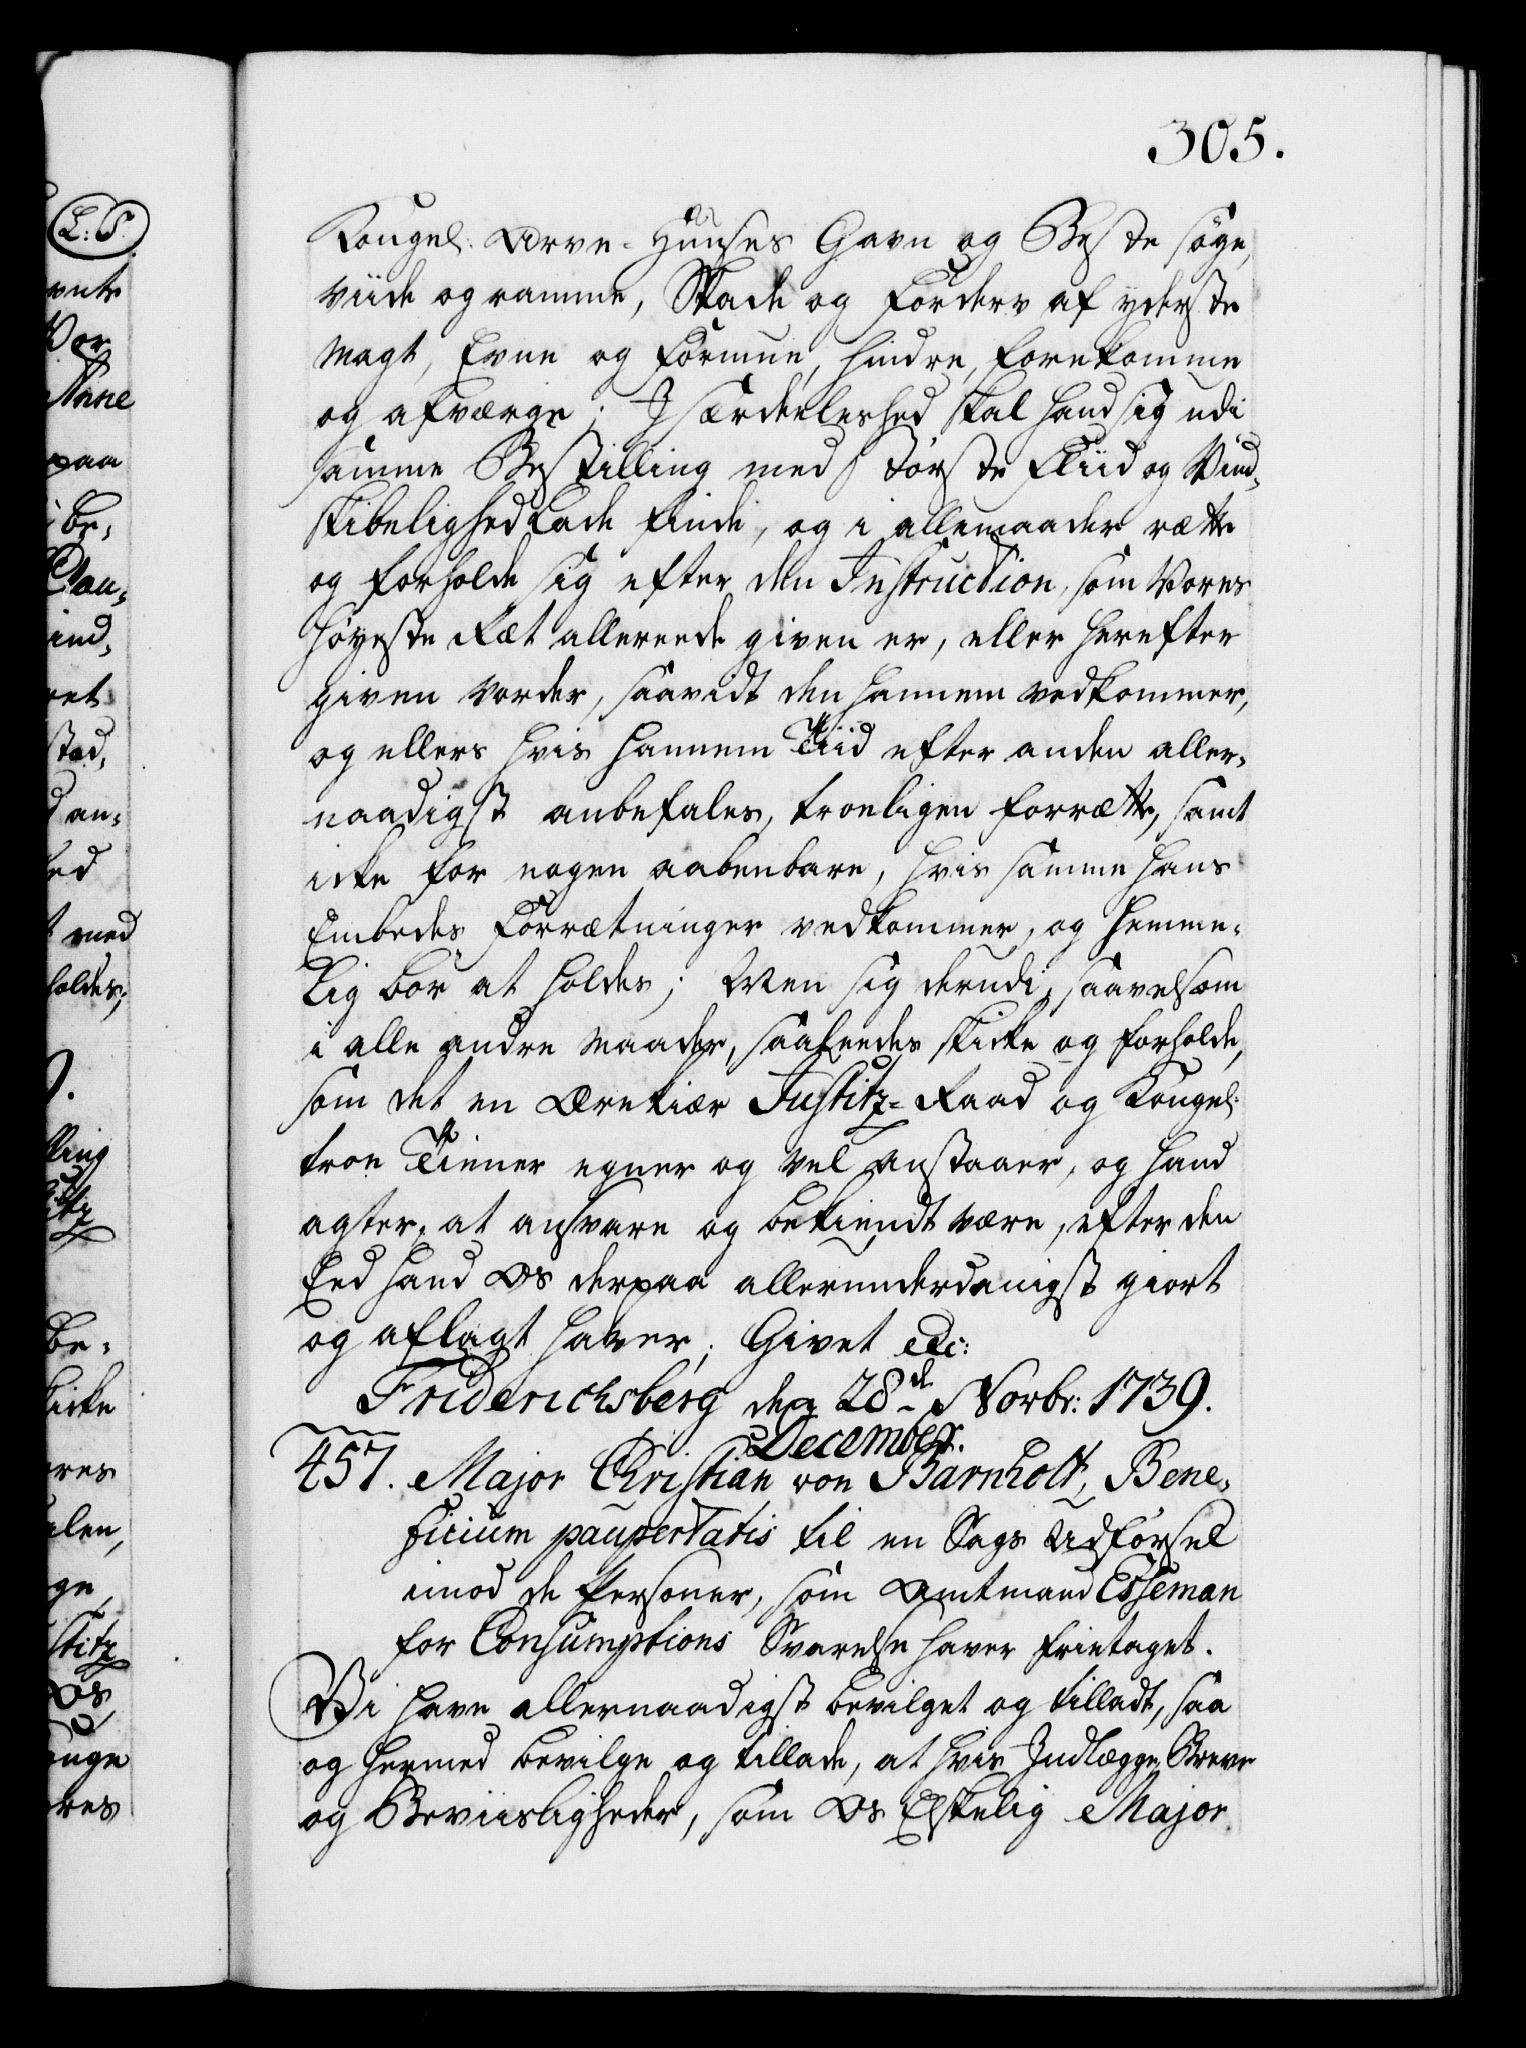 305.
Kongel: Arve-Huuses Gavn og Beste søge,
viide og ramme, Skade og Forderv af yderste
Magt, Evne og Formue, hindre, forekomme
og afværge; J særdeeleshed skal hand sig udi
samme Bestilling med største Fliid og Vind-
skibelighed lade finde, og i allemaader rætte
og forholde sig efter den Instruction, som Vores
Høyeste Ræt allereede given er, eller herefter
given vorder, saavidt den hannem vedkommer,
og ellers hvis hannem Tiid efter anden aller-
naadigst anbefales, troeligen forrætte, samt
icke for nogen aabenbare, hvis samme hans
Embedes Forrætninger vedkommer, og hemme-
lig bør at holdes; Men sig derudi, saavelsom
i alle andre maader, saaleedes skicke og forholde,
som det en Ærekiær Justitz-Raad og Kongel:
troe Tiener egner og vel anstaaer, og hand
agter, at ansvare og bekiendt være, efter den
Eed hand Os derpaa allerunderdanigst giort
og aflagt haver; Givet etc:
Friderichsberg den 28de Novbr: 1739.
December.
457. Major Christian von Barnholt, Bene-
ficium paupertatis til en Sags Udførsel
imod de Personer, som Amtmand Esseman
for Consumptions Svarelse haver frietaget.
Vi have allernaadigst bevilget og tilladt, saa
og hermed bevilge og tillade, at hvis Jndlægge, Breve
og Beviisligheder, som Os Elskelig Major
L: S
Vor
Anne
paa
be-
ind-
ret
stad,
an-
med
holdes;
ling
be-
icke
ores
stitz
Os
unge
ores